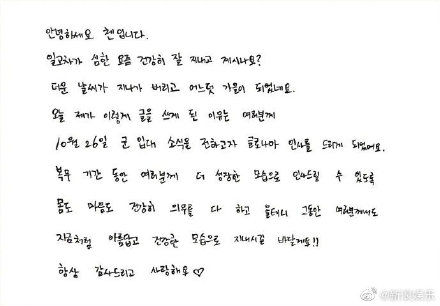 안녕하세요 첸입니다.
일교차가 심한 요즘 건강히 잘 지내고 계시나요?
더운 날씨가 지나가 버리고 어느덧 가을이 되었네요.
오늘 제가 이렇게 글을 쓰게 된 이유는 여러분께
10월 26일 군 입대 소식을 전하고자 글로나마 인사를 드리게 되었어요.
복무 기간 동안 여러분께 더 성장한 모습으로 인사드릴 수 있도록
몸도 마음도 건강히 의무를 다 하고 올테니 그동안 여러분께서도
지금처럼 아름답고 건강한 모습으로 지내시길 바랄게요!!
항상 감사드리고 사랑해요♡
@新浪娱乐